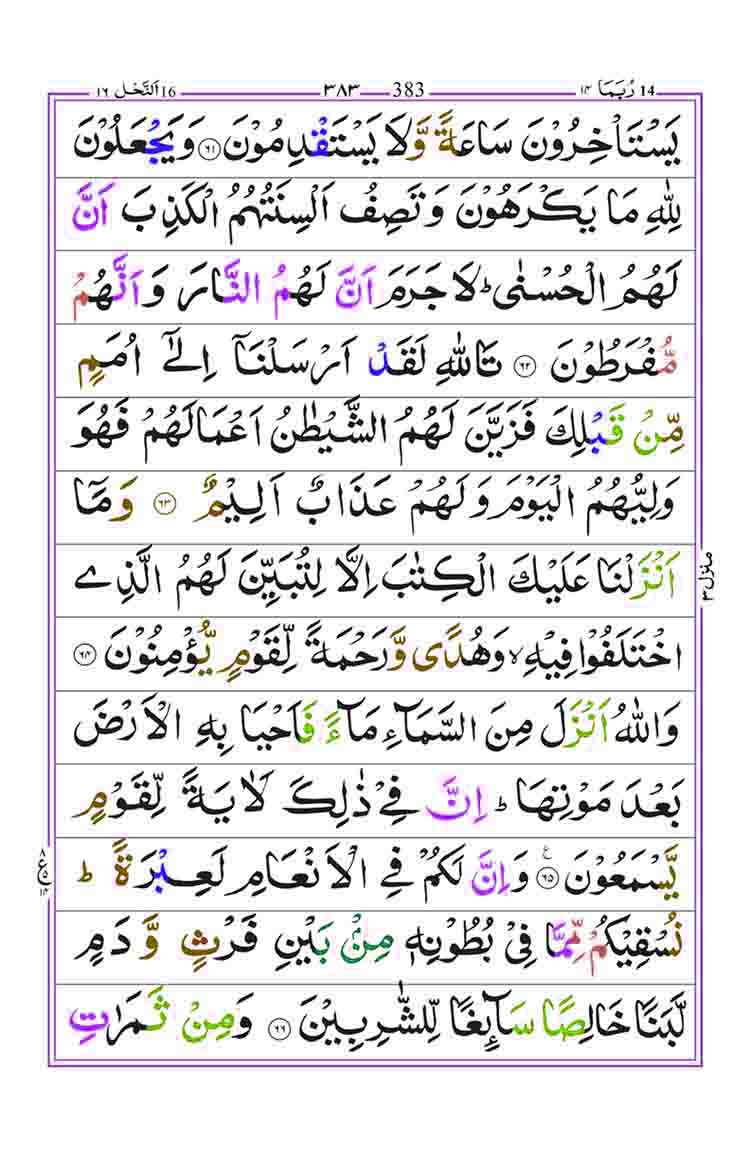 رُبَمَا 14 ١٤
383 ٣٨٣
اَلنَّحْل 16 ١٦
يَسْتَاْخِرُوْنَ سَاعَةً وَّلَا يَسْتَقْدِمُوْنَ ٦١ وَيَجْعَلُوْنَ
لِلّٰهِ مَا يَكْرَهُوْنَ وَتَصِفُ اَلْسِنَتُهُمُ الْكَذِبَ اَنَّ
لَهُمُ الْحُسْنٰىؕ لَا جَرَمَ اَنَّ لَهُمُ النَّارَ وَاَنَّهُمْ
مُّفْرَطُوْنَ ٦٢ تَاللّٰهِ لَقَدْ اَرْسَلْنَاۤ اِلٰۤى اُمَمٍ
مِّنْ قَبْلِكَ فَزَيَّنَ لَهُمُ الشَّيْطٰنُ اَعْمَالَهُمْ فَهُوَ
وَلِيُّهُمُ الْيَوْمَ وَلَهُمْ عَذَابٌ اَلِيْمٌ ٦٣ وَمَاۤ
اَنْزَلْنَا عَلَيْكَ الْكِتٰبَ اِلَّا لِتُبَيِّنَ لَهُمُ الَّذِى
اخْتَلَفُوْا فِيْهِۙ وَهُدًى وَّرَحْمَةً لِّقَوْمٍ يُّؤْمِنُوْنَ ٦٤
وَاللّٰهُ اَنْزَلَ مِنَ السَّمَآءِ مَآءً فَاَحْيَا بِهِ الْاَرْضَ
بَعْدَ مَوْتِهَاؕ اِنَّ فِىْ ذٰلِكَ لَاٰيَةً لِّقَوْمٍ
يَّسْمَعُوْنَ ٦٥ ع وَاِنَّ لَكُمْ فِى الْاَنْعَامِ لَعِبْرَةًؕ
نُسْقِيْكُمْ مِّمَّا فِىْ بُطُوْنِهٖ مِنْۢ بَيْنِ فَرْثٍ وَّدَمٍ
لَّبَنًا خَالِصًا سَآئِغًا لِّلشّٰرِبِيْنَ ٦٦ وَمِنْ ثَمَرٰتِ
منزل ٣
٨ ع ٥ ١٤